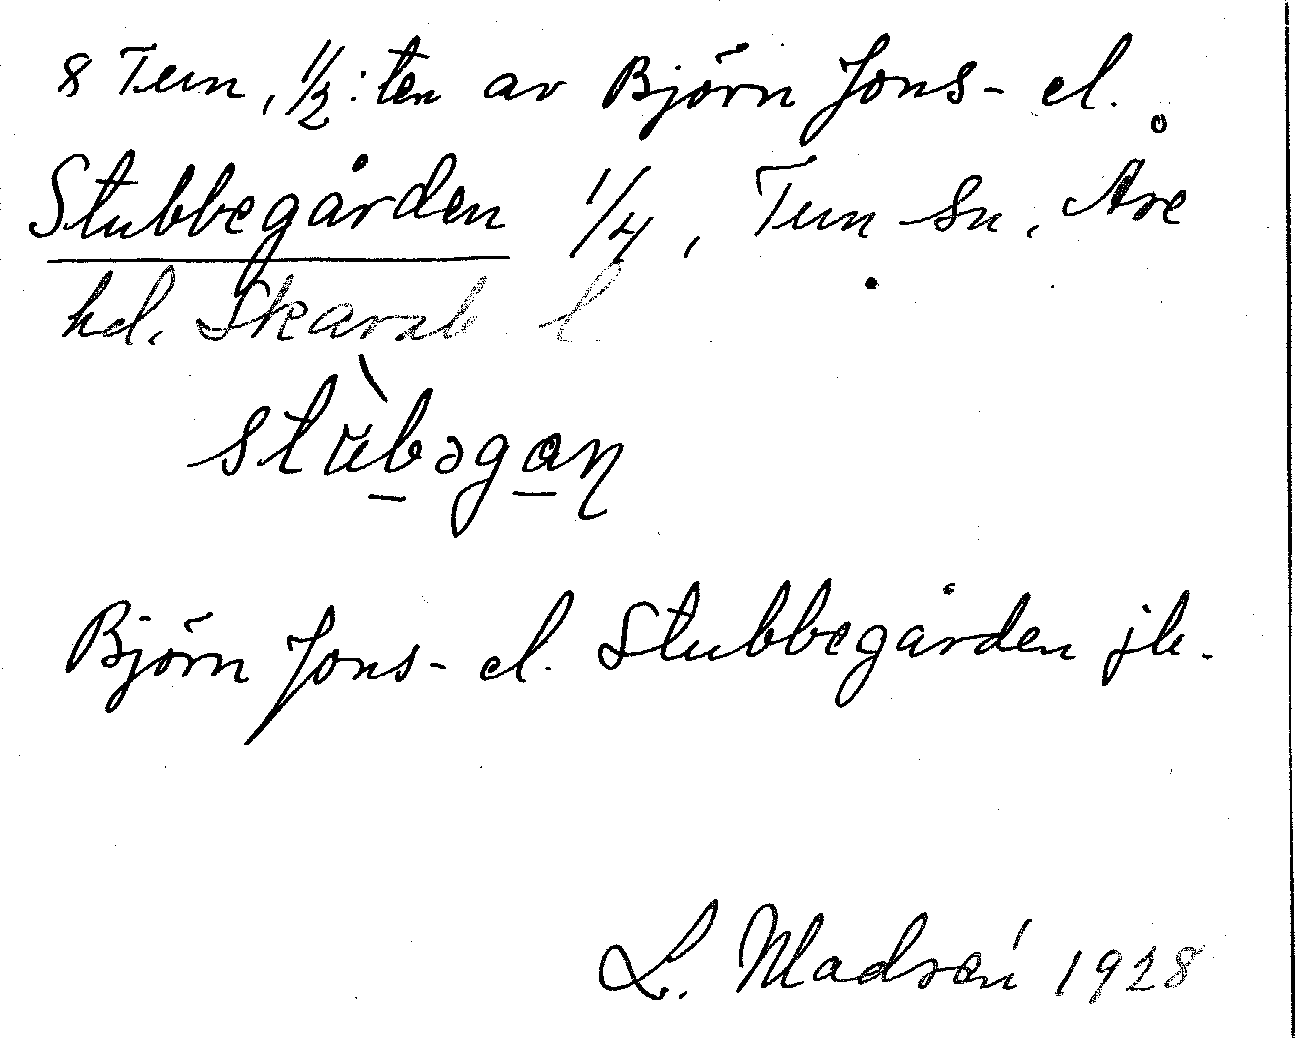 8 Tum, 1/2:ten av Björn Jons- el.
Stubbegården 1/4, Tum sn, Åse
hd. Skarab l
stùbəgan
Björn Jons- el. Stubbegården jb.
L. Madsén 1928